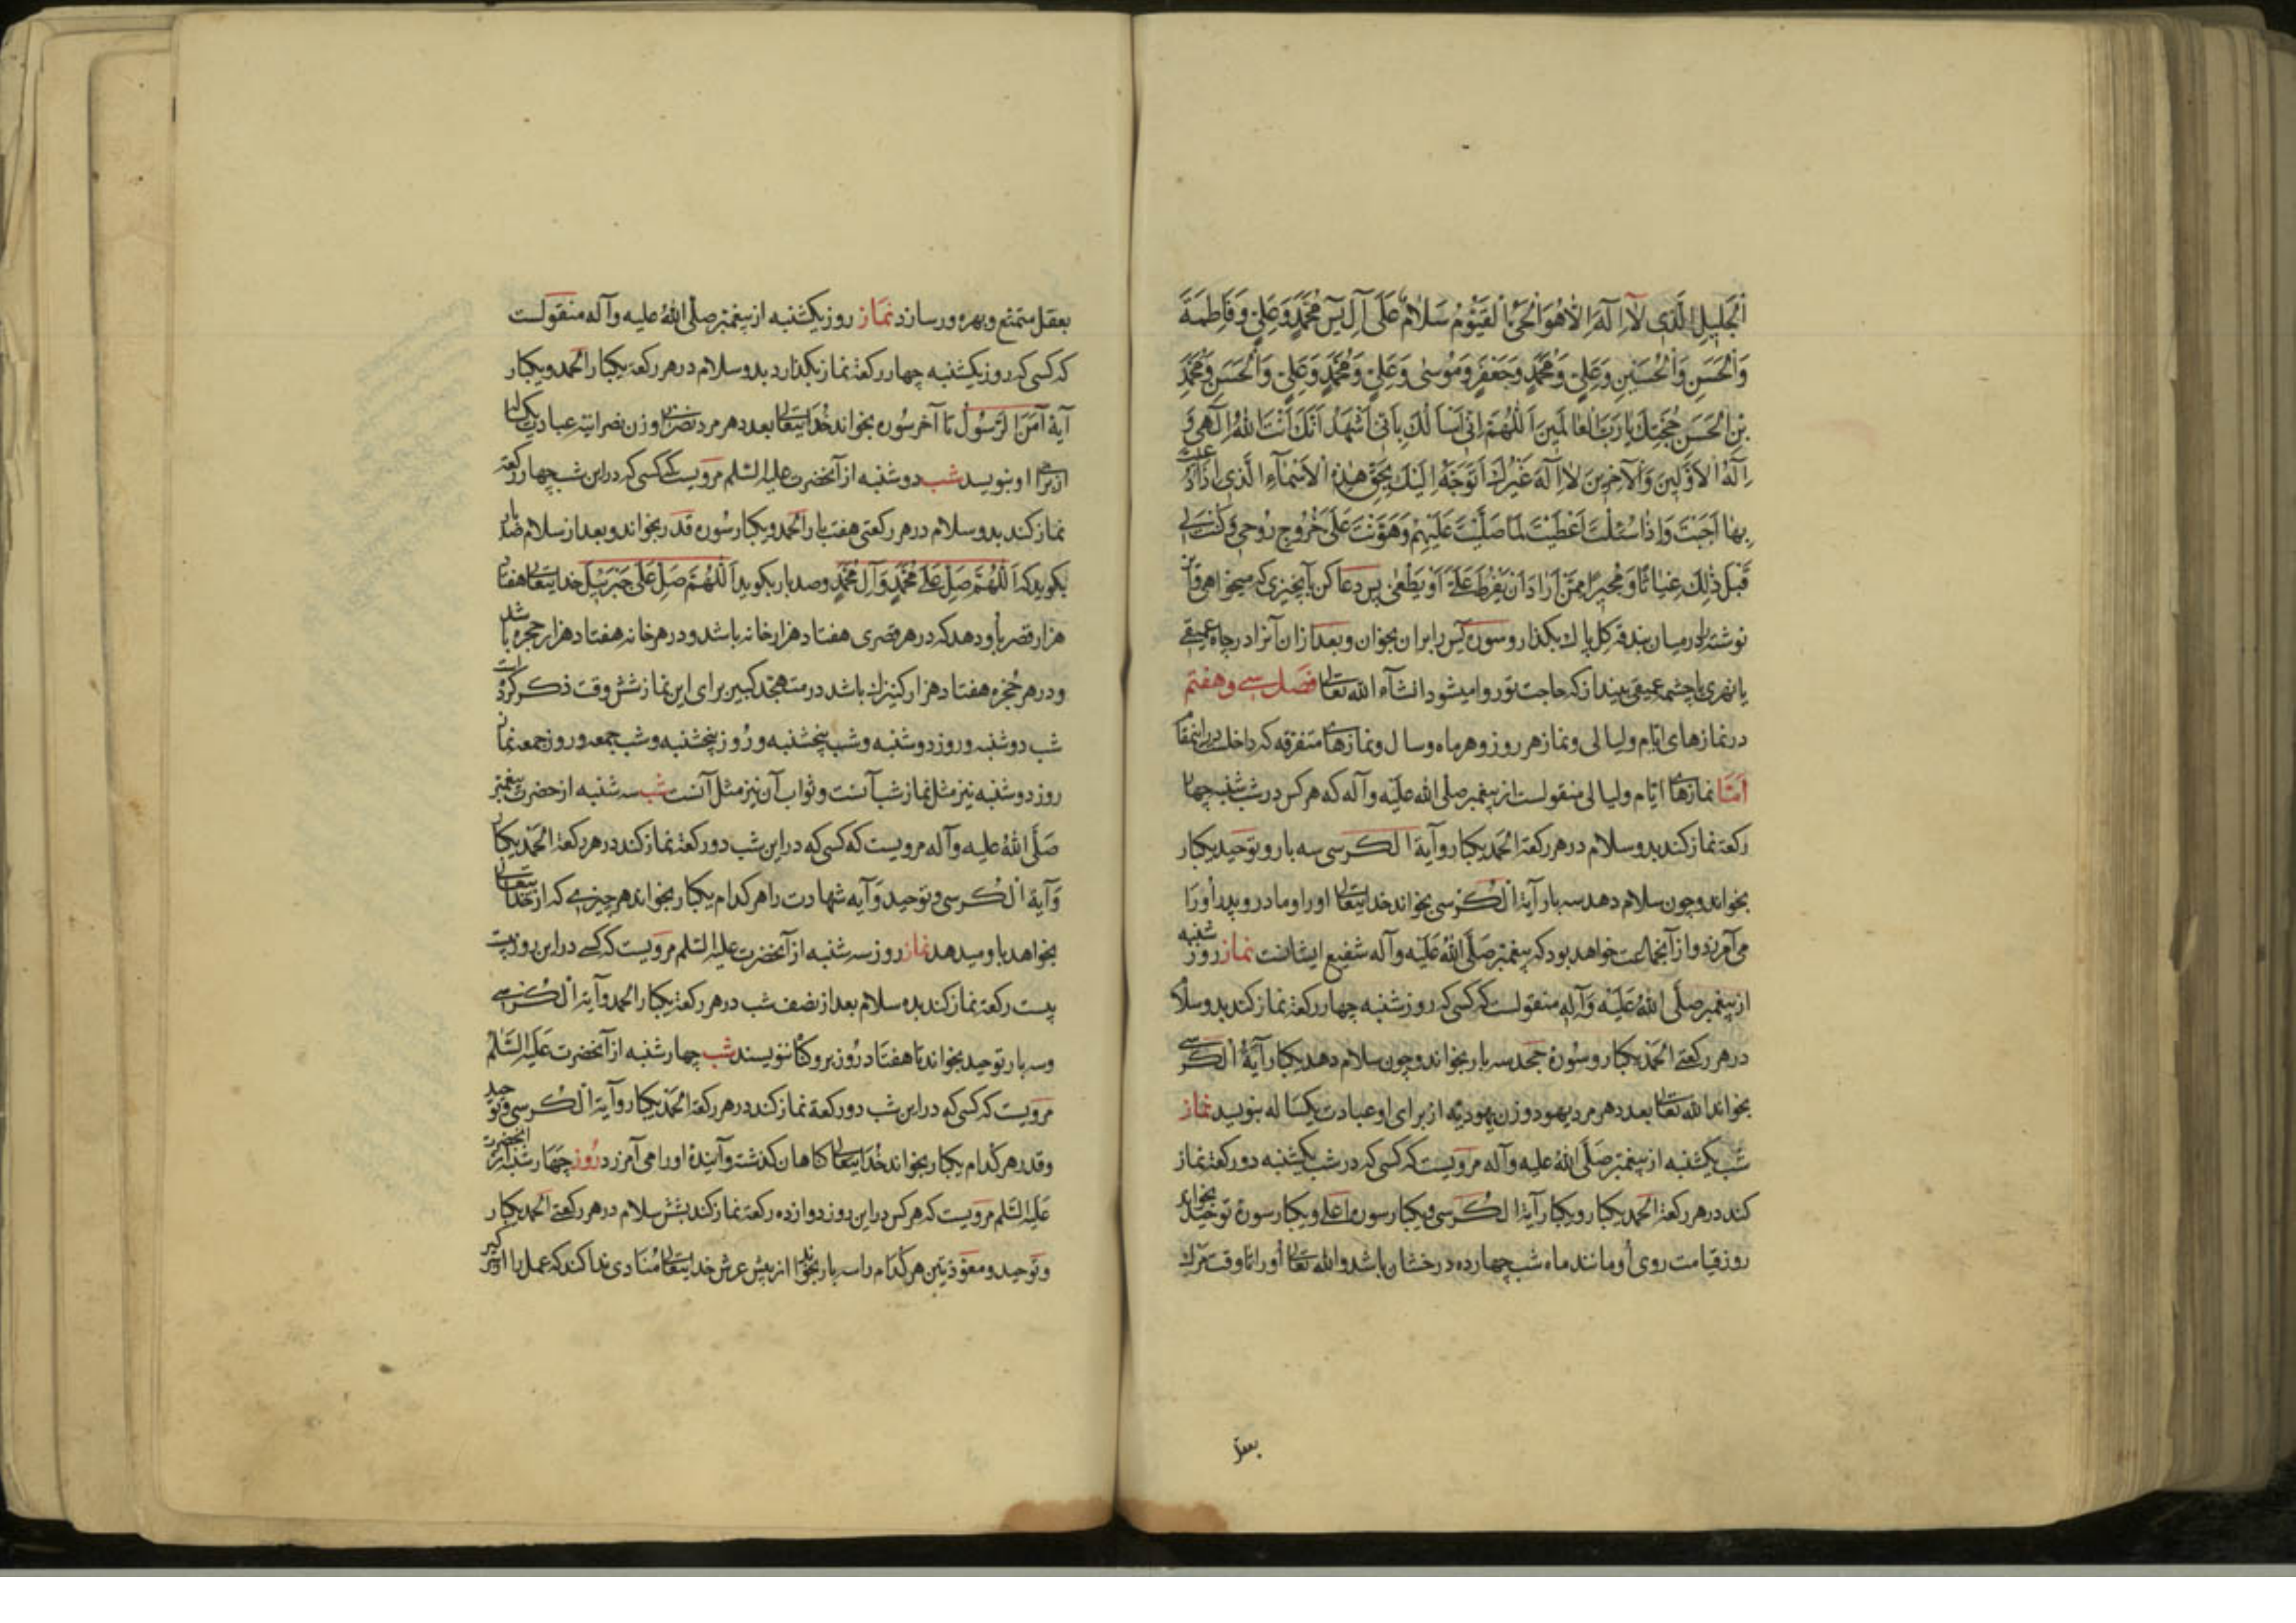 اَلْجَلِيلِ الَّذِي لَا اِلٰهَ اِلَّا هُوَ الْحَيُّ الْقَيُّومُ سَلَامٌ عَلَى آلِ يٰسٓ مُحَمَّدٍ وَعَلِيٍّ وَفَاطِمَةَ
وَالْحَسَنِ وَالْحُسَيْنِ وَعَلِيٍّ وَمُحَمَّدٍ وَجَعْفَرٍ وَمُوسٰى وَعَلِيٍّ وَمُحَمَّدٍ وَعَلِيٍّ وَالْحَسَنِ وَمُحَمَّدِ
بْنِ الْحَسَنِ حُجَّتِكَ يَا رَبَّ الْعَالَمِينَ اَللّٰهُمَّ اِنِّي اَسْأَلُكَ بِاَنِّي اَشْهَدُ اَنَّكَ اَنْتَ اللّٰهُ اِلٰهِي وَ
اِلٰهُ الْاَوَّلِينَ وَالْآخِرِينَ لَا اِلٰهَ غَيْرُكَ اَتَوَجَّهُ اِلَيْكَ بِحَقِّ هٰذِهِ الْاَسْمَاءِ الَّذِي اِذَا دُعِيتَ
بِهَا اَجَبْتَ وَاِذَا سُئِلْتَ اَعْطَيْتَ لَمَّا صَلَّيْتَ عَلَيْهِمْ وَهَوَّنْتَ عَلَيَّ خُرُوجَ رُوحِي وَكُنْتَ لِي
قَبْلَ ذٰلِكَ غِيَاثًا وَمُجِيرًا مِمَّنْ اَرَادَ اَنْ يَفْرُطَ عَلَيَّ اَوْ يَطْغٰى پس دعا کن بآنچیزی که میخواهی و این
نوشته را درمیان بندقه کل پاک بکذار و سورهٔ یس را بران بخوان و بعد ازان آنرا در چاه عمیقی
یا نهری یا چشمه عمیقی بینداز که حاجت تو روا میشود انشآء الله تعالی فصل سی و هفتم
در نمازهای ایام و لیالی و نماز هر روز و هر ماه و سال و نمازهای متفرقه که داخلست در اینمقام
امّا نمازهای ایام و لیالی منقولست از پیغمبر صلی الله علیه وآله که هر کس در شب شنبه چهار
رکعة نماز کند بدو سلام در هر رکعة الحمد یکبار و آیة الکرسی سه بار و توحید یکبار
بخواند و چون سلام دهد سه بار آیة الکرسی بخواند خدایتعالی او را و مادر و پدر او را
می آمرزد و از آنجماعت خواهد بود که پیغمبر صلّی الله علیه وآله شفیع ایشانست نماز روز شنبه
از پیغمبر صلّی الله علیه وآله منقولست که کسی که روز شنبه چهار رکعة نماز کند بدو سلام
در هر رکعتی الحمد یکبار و سورهٔ جحد سه بار بخواند و چون سلام دهد یکبار آیة الکرسی
بخواند الله تعالی بعدد هر مرد یهود و زن یهودیه از برای او عبادت یکساله بنویسد نماز
شب یکشنبه از پیغمبر صلّی الله علیه وآله مرویست که کسی که در شب یکشنبه دو رکعة نماز
کند در هر رکعة الحمد یکبار و یکبار آیة الکرسی و یکبار سورهٔ اعلی و یکبار سورهٔ توحید بخواند
روز قیامت روی او مانند ماه شب چهارده درخشان باشد و الله تعالی او را تا وقت مرک
بعقل
بعقل متمتع و بهره ور سازد نماز روز یکشنبه از پیغمبر صلّی الله علیه وآله منقولست
که کسی که روز یکشنبه چهار رکعة نماز بکذارد بدو سلام در هر رکعة یکبار الحمد و یکبار
آیهٔ آمن الرسول تا آخر سوره بخواند خدایتعالی بعدد هر مرد نصرانی و زن نصرانیه عبادت یکساله
از برای او بنویسد شب دوشنبه از آنحضرت علیه السلم مرویست که کسی که در این شب چهار رکعة
نماز کند بدو سلام در هر رکعتی هفت بار الحمد و یکبار سوره قدر بخواند و بعد از سلام صد بار
بکوید که اَللّٰهُمَّ صَلِّ عَلٰى مُحَمَّدٍ وَآلِ مُحَمَّدٍ و صد بار بکوید اَللّٰهُمَّ صَلِّ عَلٰى جَبْرَئِيلَ خدایتعالی هفتاد
هزار قصر باو دهد که در هر قصری هفتاد هزار خانه باشد و در هر خانه هفتاد هزار حجره باشد
و در هر حُجره هفتاد هزار کنیزک باشد در متهجّد کبیر برای این نماز شش وقت ذکر کرده است
شب دوشنبه و روز دوشنبه و شب پنجشنبه و روز پنجشنبه و شب جمعه و روز جمعه نماز
روز دوشنبه نیز مثل نماز شب آنست و ثواب آن نیز مثل آنست شب سه شنبه از حضرت پیغمبر
صَلَّی اللهُ علیه وآله مرویست که کسی که در این شب دو رکعة نماز کند در هر رکعة الحمد یکبار
و آیة الکرسی و توحید و آیه شهادت را هر کدام یکبار بخواند هر چیزی که از خدایتعالی
بخواهد باو میدهد نماز روز سه شنبه از آنحضرت علیه السلم مرویست که کسی که در این روز بیست
بیست رکعة نماز کند بده سلام بعد از نصف شب در هر رکعة یکبار الحمد و آیة الکرسی
و سه بار توحید بخواند تا هفتاد روز برو کناه ننویسند شب چهارشنبه از آنحضرت علیه السّلم
مرویست که کسی که در این شب دو رکعة نماز کند در هر رکعة الحمد یکبار و آیة الکرسی و توحید
و قدر هر کدام یکبار بخواند خدایتعالی کناهان کذشته و آینده او را می آمرزد روز چهارشنبه از آنحضرت
علیه السّلم مرویست که هر کس در این روز دوازده رکعة نماز کند بشش سلام در هر رکعتی الحمد یکبار
و توحید و معوّذتین هر کدام را سه بار بخواند از پیش عرش خدایتعالی منادی ندا کند که عمل را از سر کیر